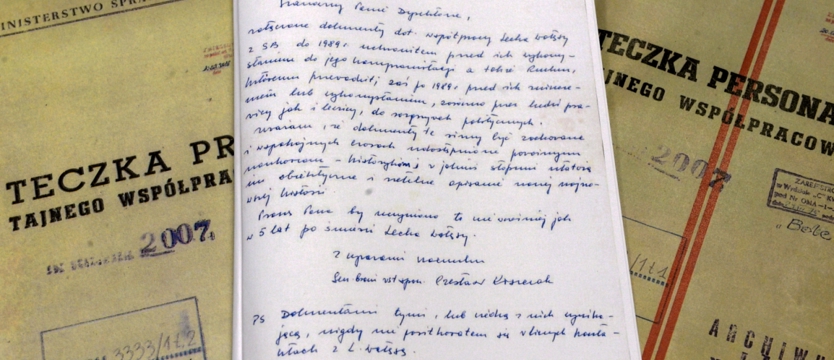 MINISTERSTWO SPRA
TECZKA PR
TAJNEGO WSPÓŁPRA
2007.
3333/1t.2
Szanowny Panie Dyrektorze,
załączone dokumenty dot. współpracy Lecha Wałęsy
z SB do 1989 r. uchroniłem przed ich wykorzy-
staniem do jego kompromitacji a także Ruchu,
któremu przewodził; zaś po 1989 r. przed ich zniszcze-
niem lub wykorzystaniem, zarówno przez ludzi pra-
wicy jak i lewicy, do rozgrywek politycznych.
Uważam, że dokumenty te winny być zachowane
i w spokojnych czasach udostępnione poważnym
naukowcom - historykom, w jakimś stopniu ułatwią
im obiektywne i rzetelne opisanie naszej najno-
wszej historii.
Proszę Pana by uczyniono to nie wcześniej jak
w 5 lat po śmierci Lecha Wałęsy.
Z wyrazami szacunku
Gen. broni w st. sp. Czesław Kiszczak
PS Dokumentami tymi, lub wiedzą z nich wynika-
jącą, nigdy nie posiłkowałem się w licznych konta-
ktach z L. Wałęsą.
TECZKA PERSONA
TAJNEGO WSPÓŁPRACOW
2007
"Bole
/1t.1
ARCHIW